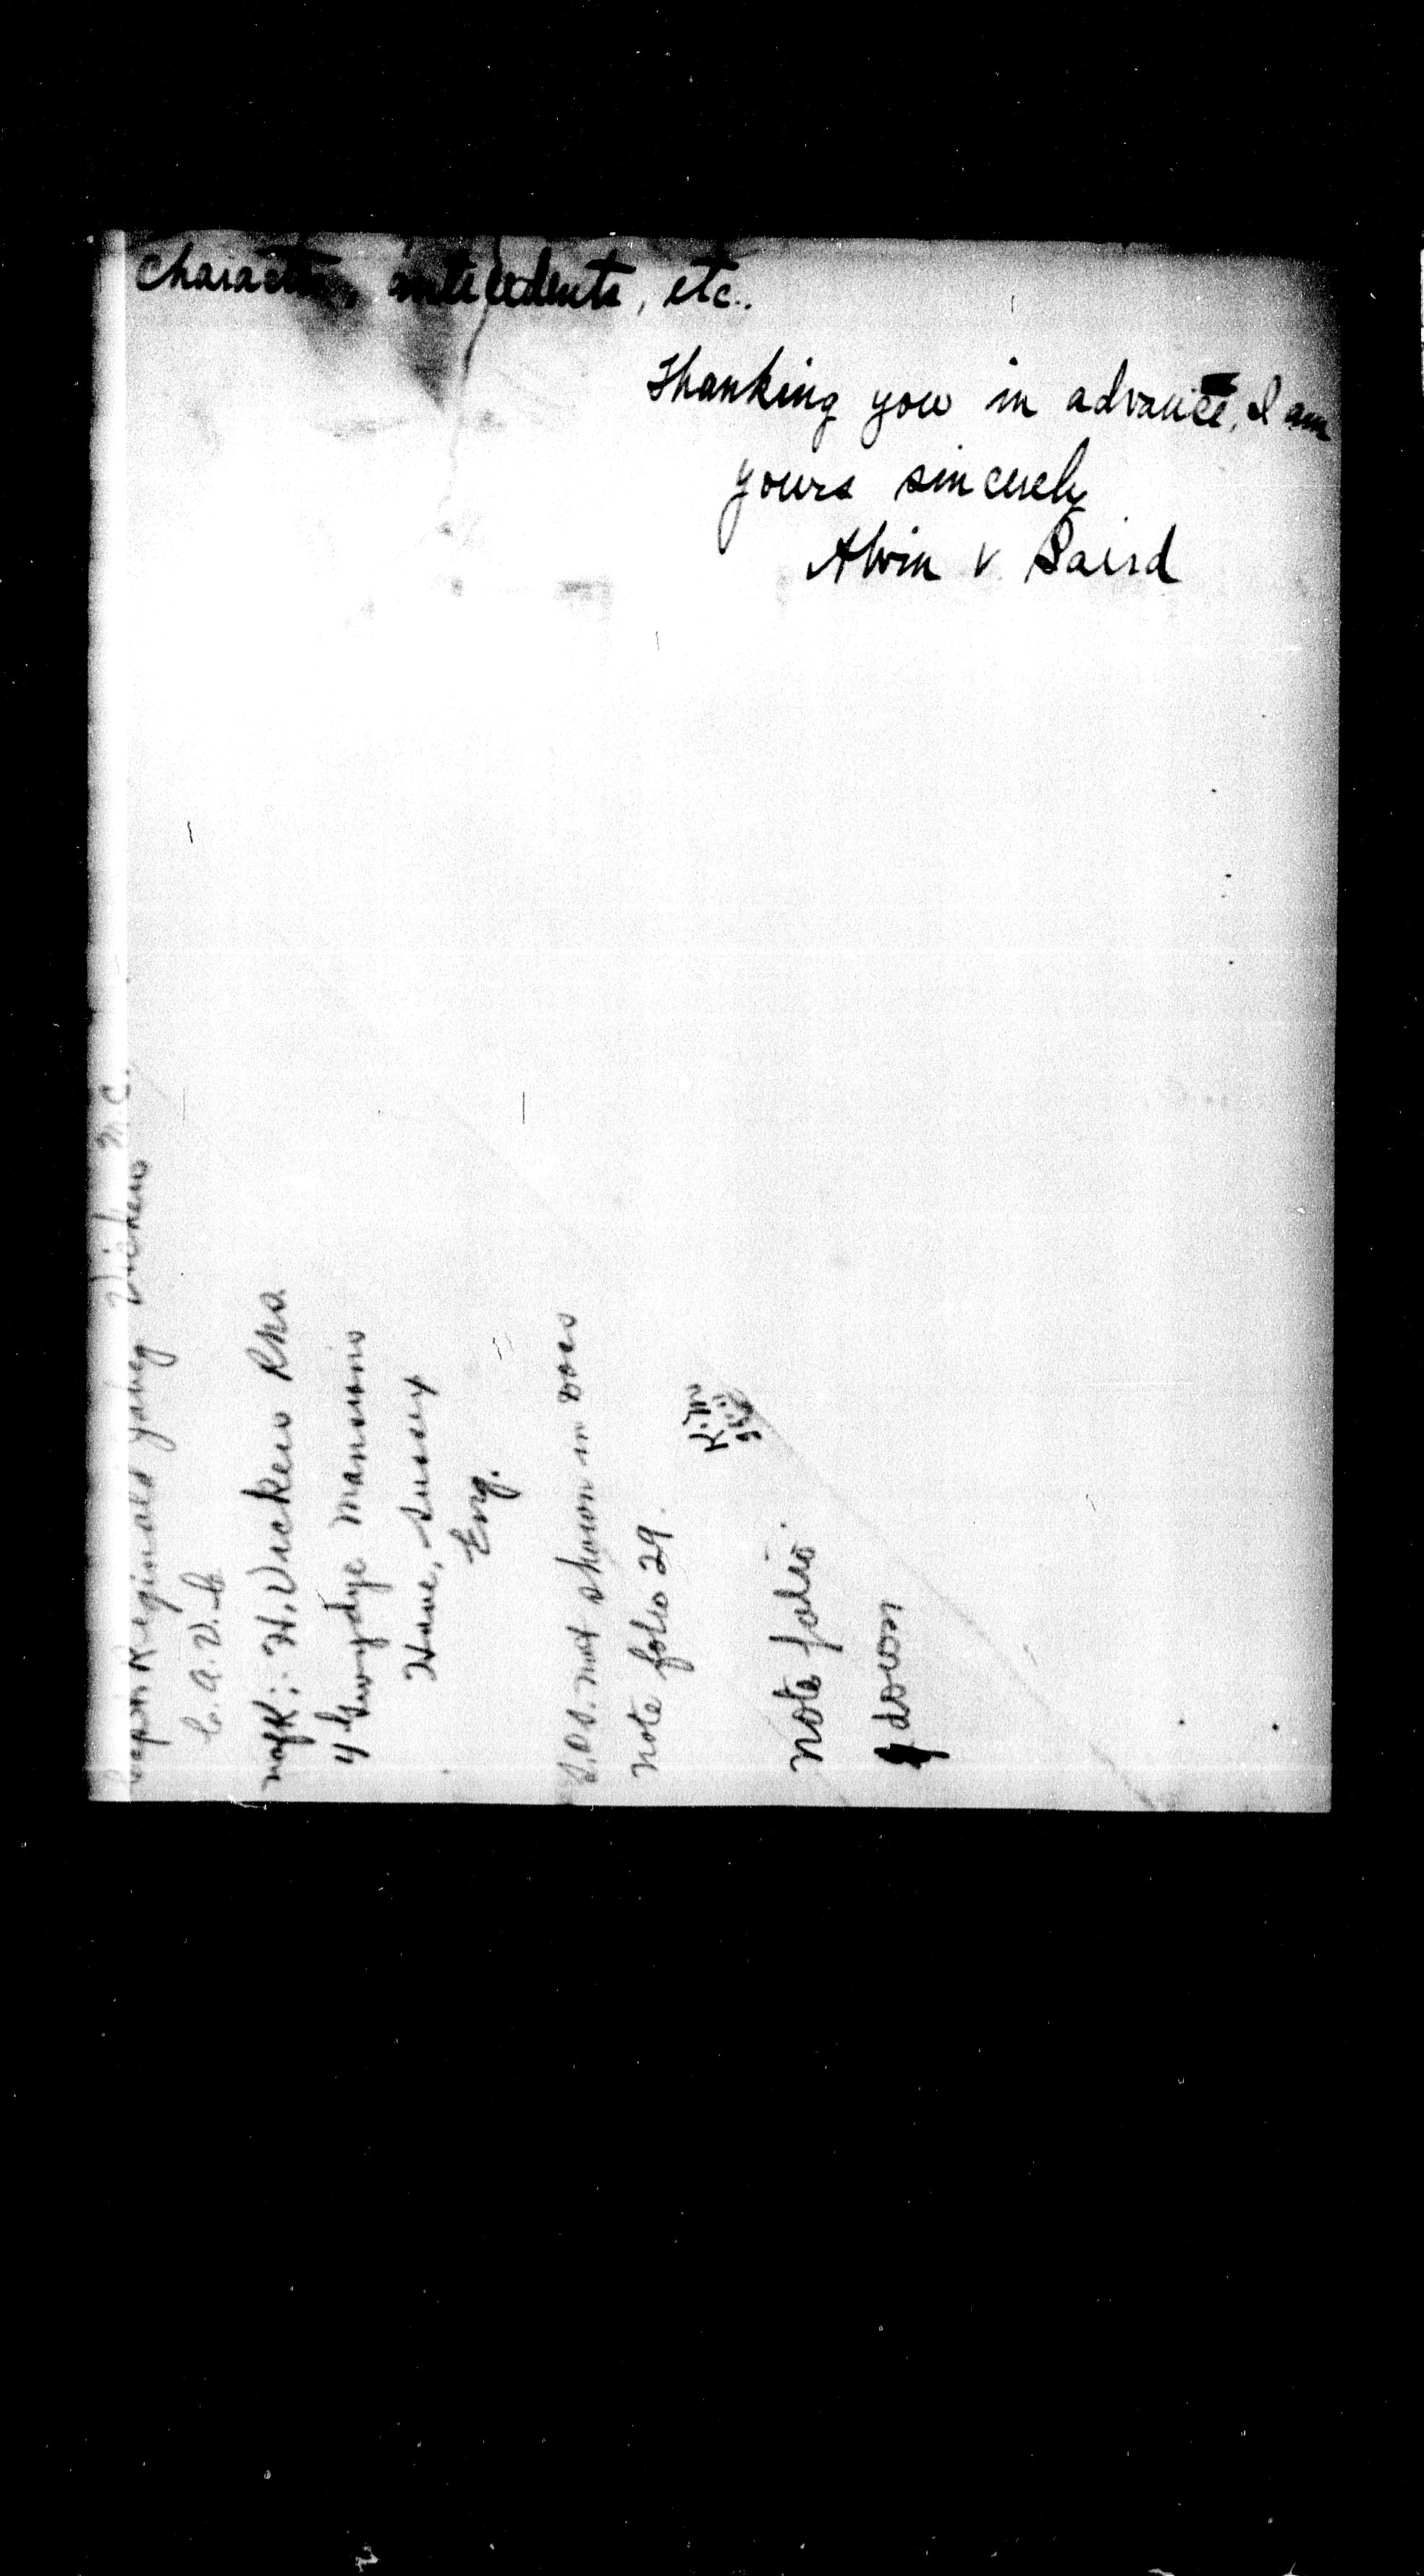 character, antecedents, etc.
Thanking you in advance, I am
yours sincerely
Alvin V Baird
M.C.
Capt. Reginald Vickers
C.A.V.C.
nofK: H. Vickers
4 Mansions
Hove, Sussex
Eng.
not shown in Docs
Note folio 29.
Note folio
down